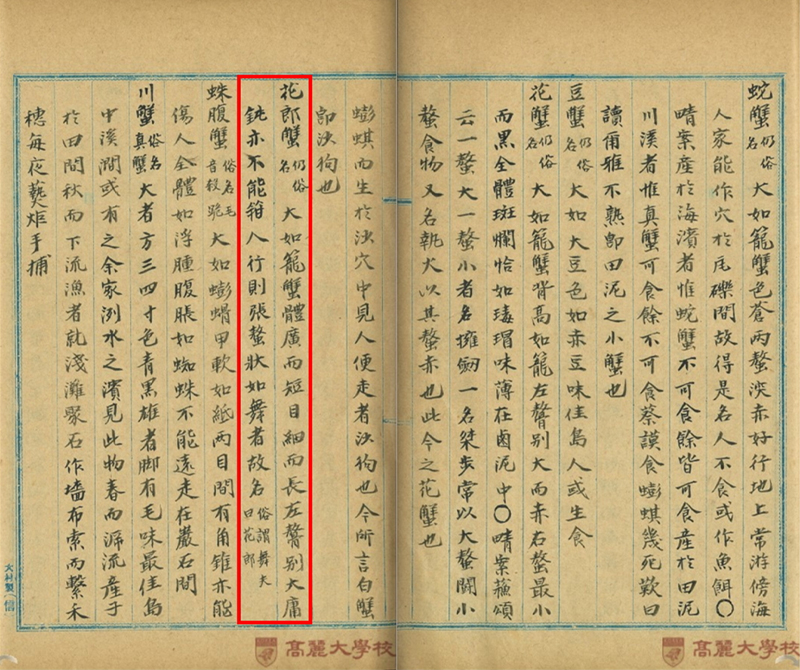 蛇蟹仍俗名大如籠蟹色蒼兩螯淡赤好行地上常游傍海
人家能作穴於瓦礫間故得是名人不食或作魚餌〇
晴案產於海濱者惟蛇蟹不可食餘皆可食產於田泥
川溪者惟真蟹可食餘不可食蔡謨食蟛蜞幾死歎曰
讀爾雅不熟卽田泥之小蟹也
豆蟹仍俗名大如大豆色如赤豆味佳島人或生食
花蟹仍俗名大如籠蟹背高如籠左螯別大而赤右螯最小
而黑全體斑斕恰如瑇瑁味薄在鹵泥中〇晴案蘇頌
云一螯大一螯小者名擁劒一名桀步常以大螯鬪小
螯食物又名執火以其螯赤也此今之花蟹也
蟛蜞而生於沙穴中見人便走者沙狗也今所言白蟹
卽沙狗也
花郎蟹仍俗名大如籠蟹體廣而短目細而長左螯別大庸
鈍亦不能箝人行則張螯狀如舞者故名俗謂舞夫曰花郎
蛛腹蟹俗名毛音殺跪大如蟛螖甲軟如紙兩目間有角錐亦能
傷人全體如浮腫腹脹如蜘蛛不能遠走在巖石間
川蟹俗名真蟹大者方三四寸色青黑雄者脚有毛味最佳島
中溪澗或有之余家洌水之濱見此物春而泝流產子
於田間秋而下流漁者就淺灘聚石作墻布索而繫禾
穗每夜爇炬手捕
大村製(信)
高麗大學校
高麗大學校